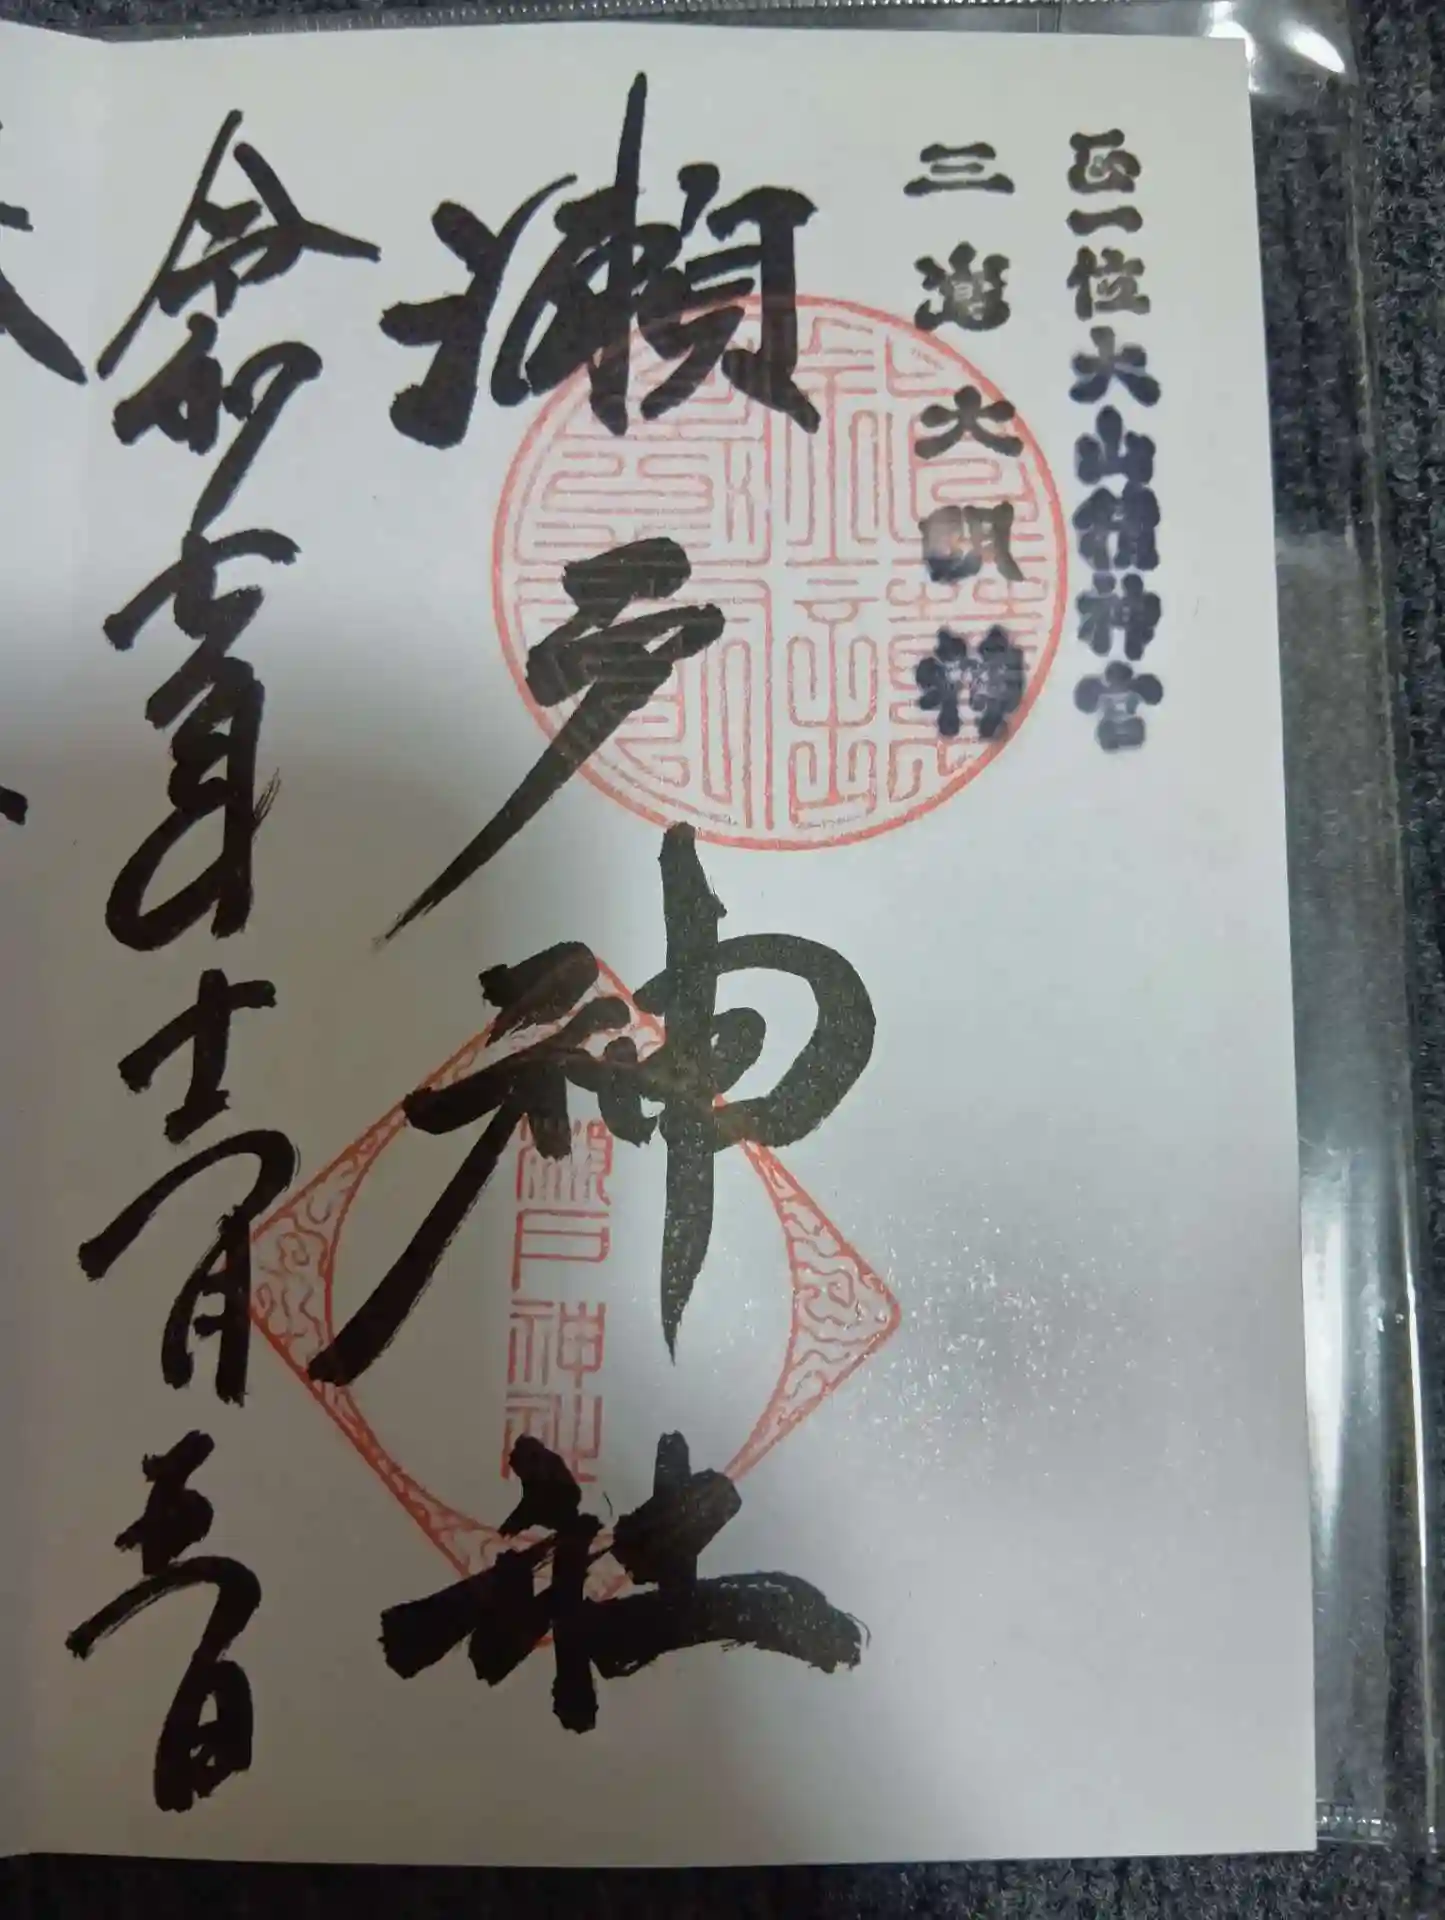 正一位大山積神宮
三 大明神
瀬戸神社
瀬戸神社
令和七年十一月五日